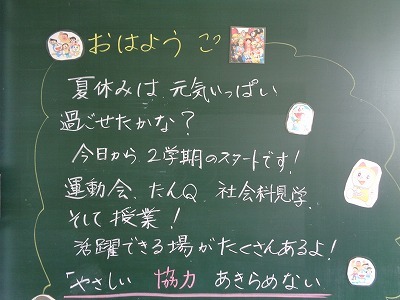 おはようございます
夏休みは、元気いっぱい
過ごせたかな?
今日から2学期のスタートです!
運動会、たんQ、社会科見学、
そして授業!
活躍できる場がたくさんあるよ!
「やさしい 協力 あきらめない